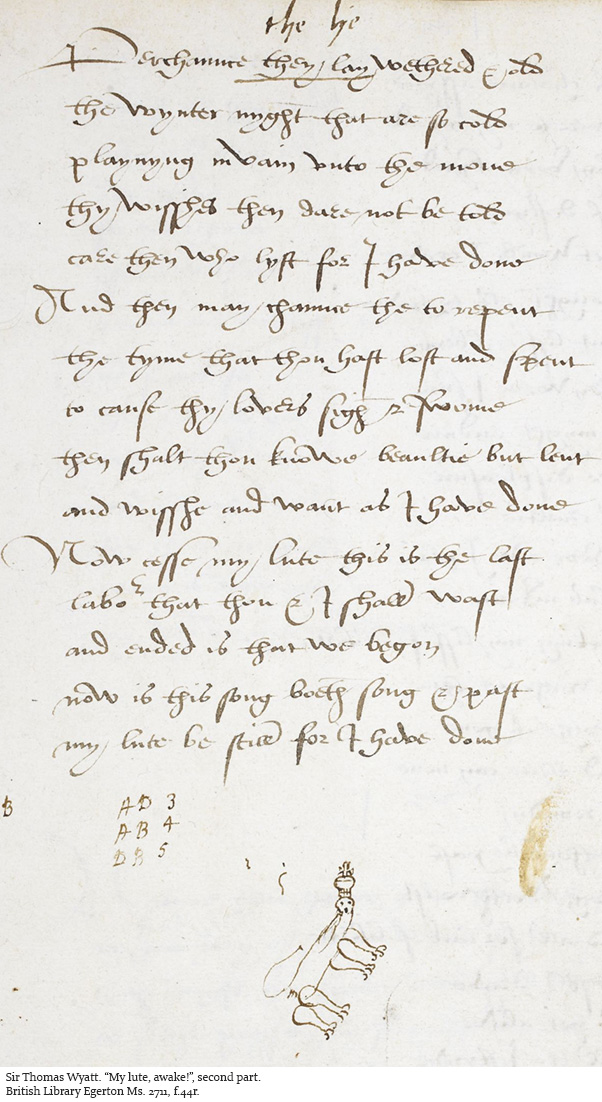 the lie
Perchaunce they lay wethered & old
the wynter nyght that are so cold
playnyng in vain vnto the mone
thy wisshes then dare not be told
care then who lyst for I have done
And then may chaunce the to repent
the tyme that thou hast lost and spent
to cause thy lovers sigh & swoune
then shalt thou knowe beaultie but lent
and wisshe and want as I have done
Now cesse my lute this is the last
labor that thou & I shall wast
and ended is that we begon
now is this song boeth song & past
my lute be still for I have done
B
AD 3
AB 4
DB 5
Sir Thomas Wyatt. “My lute, awake!”, second part.
British Library Egerton Ms. 2711, f.44r.